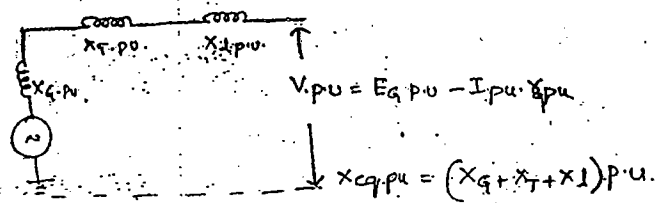 X_T.pu. X_l.p.u.
X_G.pu
~
V.pu = E_G p.u - I.pu.
Xeq.pu = (X_G + X_T + Xl).p.u.